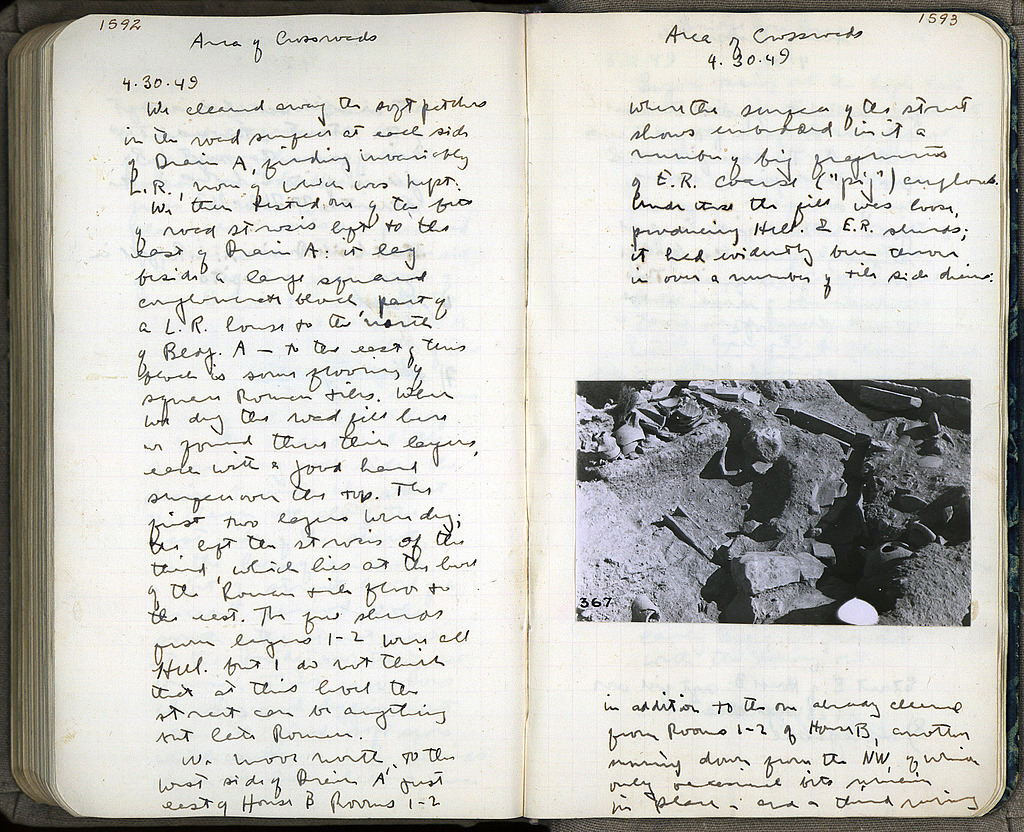 1592
Area of Crossroads
4.30.49
We cleared away the soft patches
in the road surface at each side
of Drain A, finding invariably
L.R., none of which was kept.
We then tested one of the bits
of road strosis left to the
east of Drain A: it lay
beside a large squared
conglomerate block, part of
a L.R. house to the north
of Bldg. A — to the east of this
block is some flooring of
square Roman tiles. When
we dug the road fill here
we found three thin layers,
each with a good hard
surface over the top. The
first two layers were dug;
we left the strosis of the
third, which lies at the level
of the Roman tile floor to
the east. The few sherds
from layers 1-2 were all
Hell. but I do not think
that at this level the
street can be anything
but late Roman.
We move north, to the
west side of Drain A, just
east of House B Rooms 1-2
1593
Area of Crossroads
4.30.49
where the surface of the street
shows embedded in it a
number of big fragments
of E.R. coarse ("pig")
Under this the fill was loose,
producing Hell. & E.R. sherds;
it had evidently been thrown
in over a number of tile side drains:
367
in addition to the one already cleared
from Rooms 1-2 of House B, another
running down from the NW, of which
only occasional bits remain
in place; and a third running